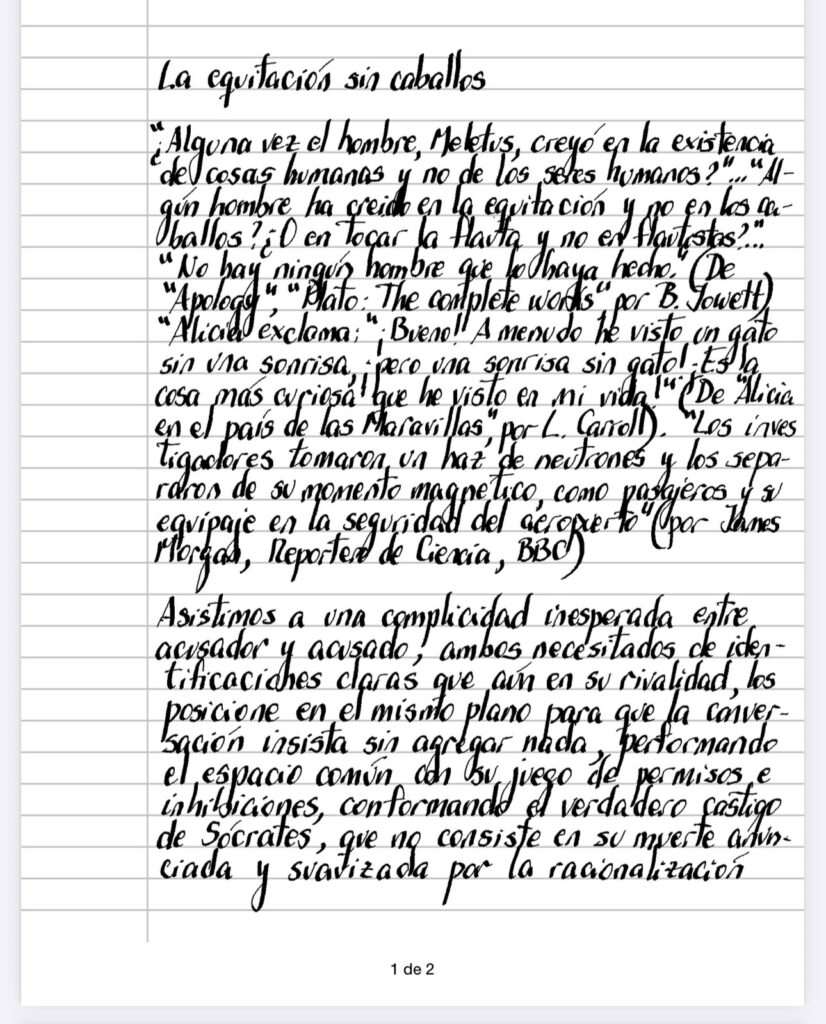 La equitación sin caballos
"¿Alguna vez el hombre, Meletus, creyó en la existencia
de cosas humanas y no de los seres humanos?"..."Al-
gún hombre ha creído en la equitación y no en los ca-
ballos? ¿O en tocar la flauta y no en flautistas?..."
"No hay ningún hombre que lo haya hecho." (De
"Apology", "Plato: The complete works" por B. Jowett)
"Alicia exclama: "¡Bueno! A menudo he visto un gato
sin una sonrisa, ¡pero una sonrisa sin gato! ¡Es la
cosa más curiosa que he visto en mi vida!" (De "Alicia
en el país de las Maravillas", por L. Carroll). "Los inves
tigadores tomaron un haz de neutrones y los sepa-
raron de su momento magnético, como pasajeros y su
equipaje en la seguridad del aeropuerto" (por James
Morgan, Reportero de Ciencia, BBC)
Asistimos a una complicidad inesperada entre
acusador y acusado, ambos necesitados de iden-
tificaciones claras que aún en su rivalidad, los
posicione en el mismo plano para que la conver-
sación insista sin agregar nada, performando
el espacio común con su juego de permisos e
inhibiciones, conformando el verdadero castigo
de Sócrates, que no consiste en su muerte anun-
ciada y suavizada por la racionalización
1 de 2